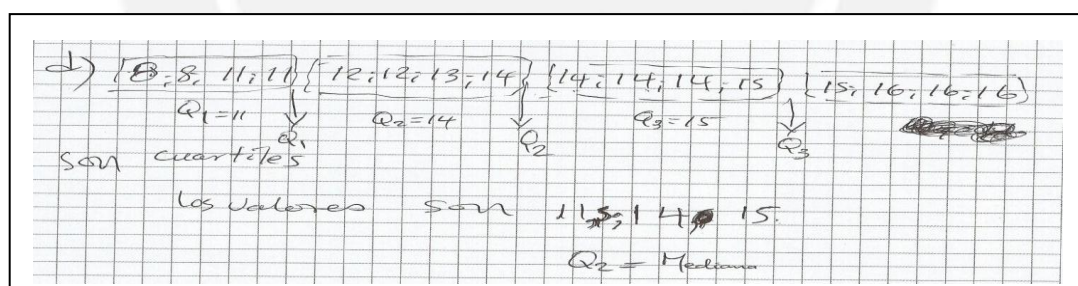 d) {8; 8; 11; 11} {12; 12; 13; 14} {14; 14; 14; 15} {15; 16; 16; 16}
Q₁=11 Q₂=14 Q₃=15
Q₁ Q₂ Q₃
son cuartiles
los valores son 11; 14; 15.
Q₂ = Mediana